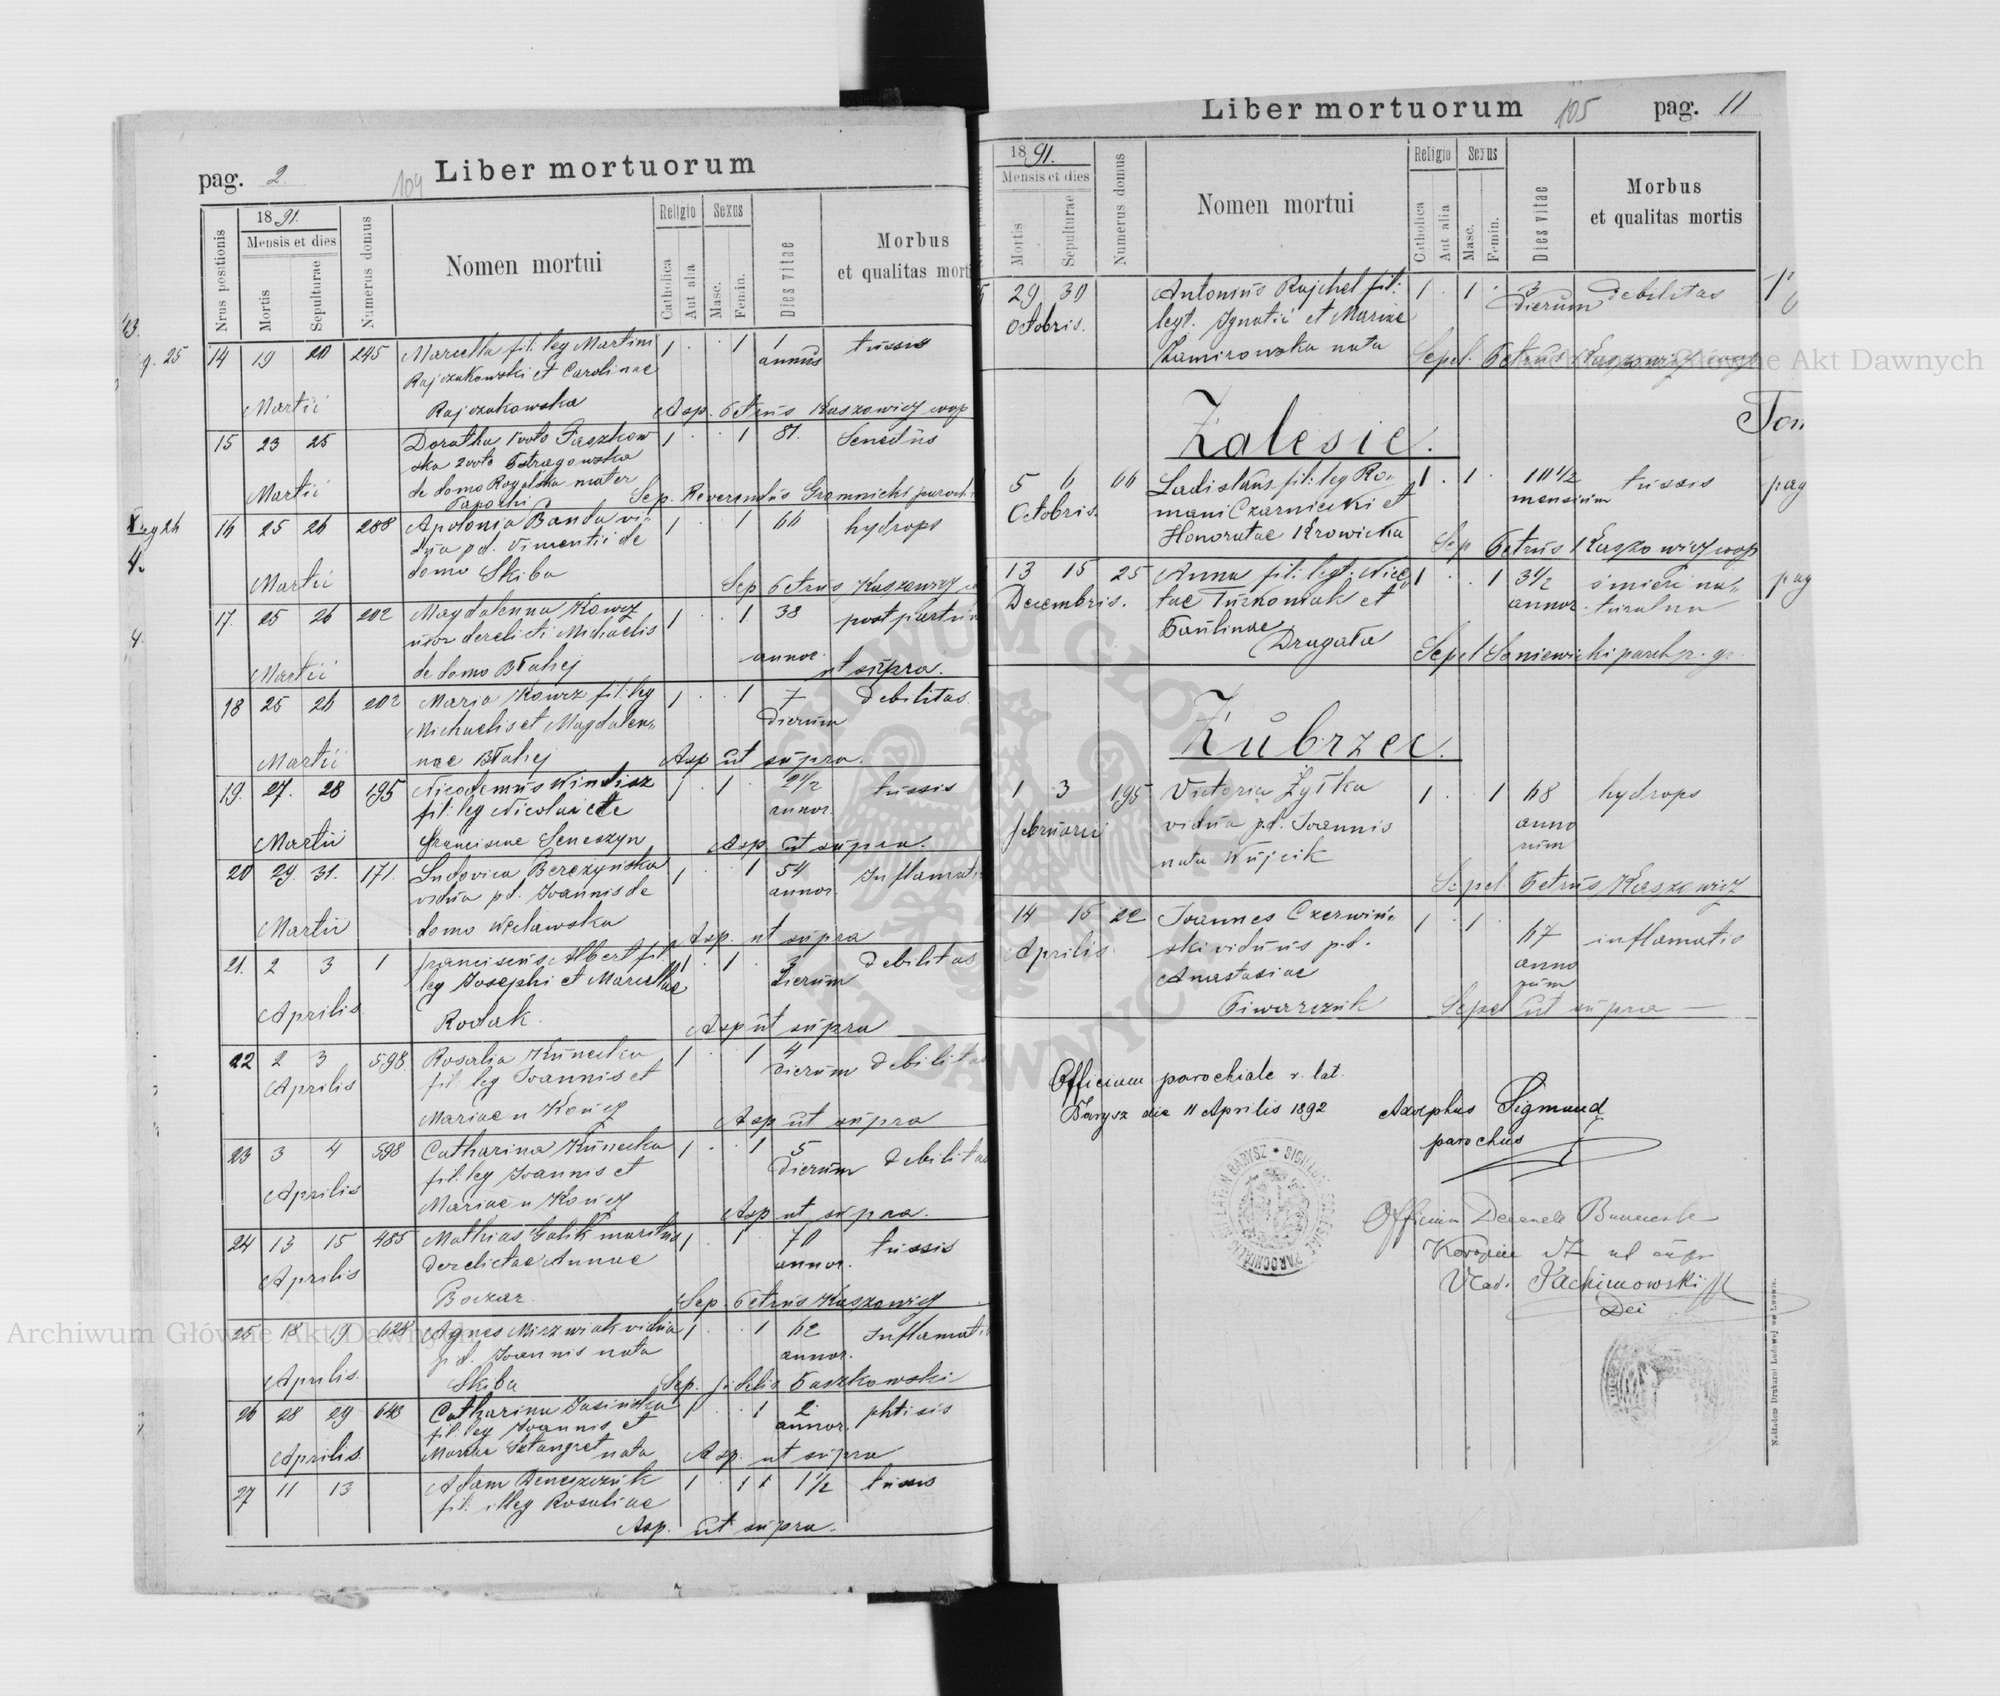 pag. 2.
104
Liber mortuorum
Nrus positionis
18 91.
Mensis et dies
Mortis
Sepulturae
Numerus domus
Nomen mortui
Religio
Catholica
Aut alia
Sexus
Masc.
Femin.
Dies vitae
Morbus
et qualitas mort
14 19 20 245 Marcella fil. leg Martini 1 1 1 tussis
Rajczakowski et Carolinae annus
Martii Rajczakowska Asp. Petrus Kaszowicz coop
15 23 25 Dorothea 1voto Paszkow 1 1 81. Senectus
ska 2voto Petragowska
Martii de domo Rogalska mater Sep. Reverendus Gromnicki paroch
16 25 26 288 Apolonia Banda vi- 1 1 66 hydrops
dua p.d. Vincentii de
Martii domo Skiba Sep Petrus Kaszowicz
17. 25 26 202 Magdalenna Kowcz 1 1 38 post partum
uxor derelicti Michaelis
Martii de domo Błahej annor. ut supra.
18 25 26 202 Maria Kowcz fil: leg 1 1 7 debilitas.
Michaelis et Magdalen-
dierum
Martii nae Błahej Asp ut supra.
19. 27. 28 195 Nicodemus Windisz 1 1 2 1/2 tussis
fil: leg Nicolai et annor.
Martii Franciscae Seneszyn Asp. ut supra.
20 29. 31. 171. Ludovica Berezynska 1 1 54 Inflamati
vidua p.d. Joannis de annor.
Martii domo Węclawska Asp. ut supra
21. 2 3 1 Franciscus Albert fil. 1 1 3 debilitas
leg Josephi et Marcellae dierum
Aprilis Rodak. Asp ut supra
22 2 3 598. Rosalia Kunecka 1 1 4 debilitas
Aprilis fil: leg Joannis et dierum
Mariae n Koncz Asp ut supra
23 3 4 598 Catharina Kunecka 1 1 5 debilitas
fil: leg Joannis et dierum
Aprilis Mariae n Koncz Asp ut supra.
24 13 15 485 Mathias Galik maritus 1 1 70 tussis
derelictae Annae annor.
Aprilis Boczar Sep. Petrus Kaszowicz
25 18 19 628 Agnes Mizwiak vidua 1 1 62 Inflamati
p.d. Joannis nata annor.
Aprilis. Skiba Sep. Fidelis Paszkowski
26 28 29 643 Catharina Jasinska 1 1 2 phtisis
fil: leg Joannis et annor.
Aprilis. Mariae Sztangret nata Asp. ut supra
27 11 13 Adam Deneszczuk 1 1 1 1 1/2 tussis
fil. illeg Rosaliae
Asp. ut supra.
Liber mortuorum 105 pag. 11
18 91.
Mensis et dies
Mortis
Sepulturae
Numerus domus
Nomen mortui
Religio
Catholica
Aut alia
Sexus
Masc.
Femin.
Dies vitae
Morbus
et qualitas mortis
29 30 Antonius Rajchel fil: 1 1 3 debilitas
Octobris. legt. Ignatii et Mariae dierum
Zamirowska nata Sepel. Petrus Kaszowicz coop
Zalesie.
5 6 66 Ladislaus fil: leg Ro- 1 1 10 1/2 tussis
Octobris. mani Czarniecki et mensium
Honoratae Krowicka Sep Petrus Kaszowicz coop
13 15 25 Anna fil: legt: Nice- 1 1 3 1/2 śmierć na-
Decembris. tae Turkoniak et annor. turalna
Paulinae
Dragała Sepel Saniewicki paroh r. gr.
Zubrzec.
1 3 195 Victoria Żyłka 1 1 68 hydrops
februarii vidua p.d. Joannis anno
nata Wujcik rum
Sepel. Petrus Kaszowicz
14 15 22 Joannes Czerwiń- 1 1 67 inflamatio
Aprilis. ski viduus p.d. anno
Anastasiae rum
Piwarczuk Sepel ut supra
Officium parochiale r. lat.
Barysz die 11 Aprilis 1892 Adolphus Sigmund
parochus
Officium Decanale
ut supr
Vlad. Jachimowski
Dei
Nakładem Drukarni Ludowej we Lwowie.
Archiwum Główne Akt Dawnych
Archiwum Główne Akt Dawnych
ARCHIWUM GŁÓWNE AKT DAWNYCH